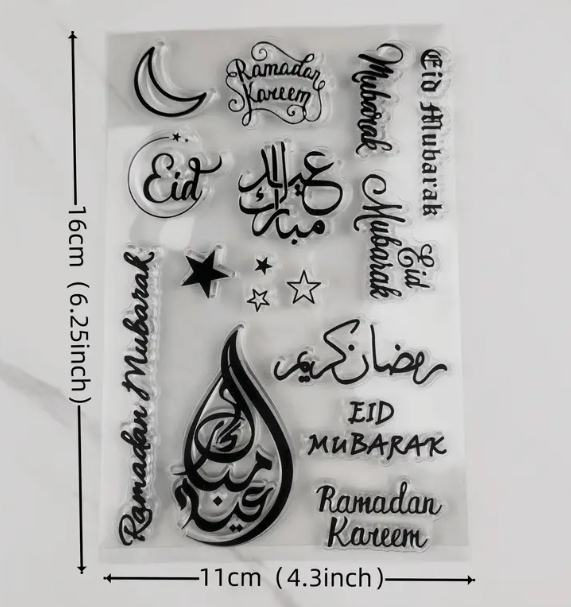 Ramadan
Kareem
Mubarak
Eid Mubarak
Eid
عيد
مبارك
Eid
Mubarak
Ramadan Mubarak
رمضان كريم
مبارك
عيد
EID
MUBARAK
Ramadan
Kareem
16cm (6.25inch)
11cm (4.3inch)